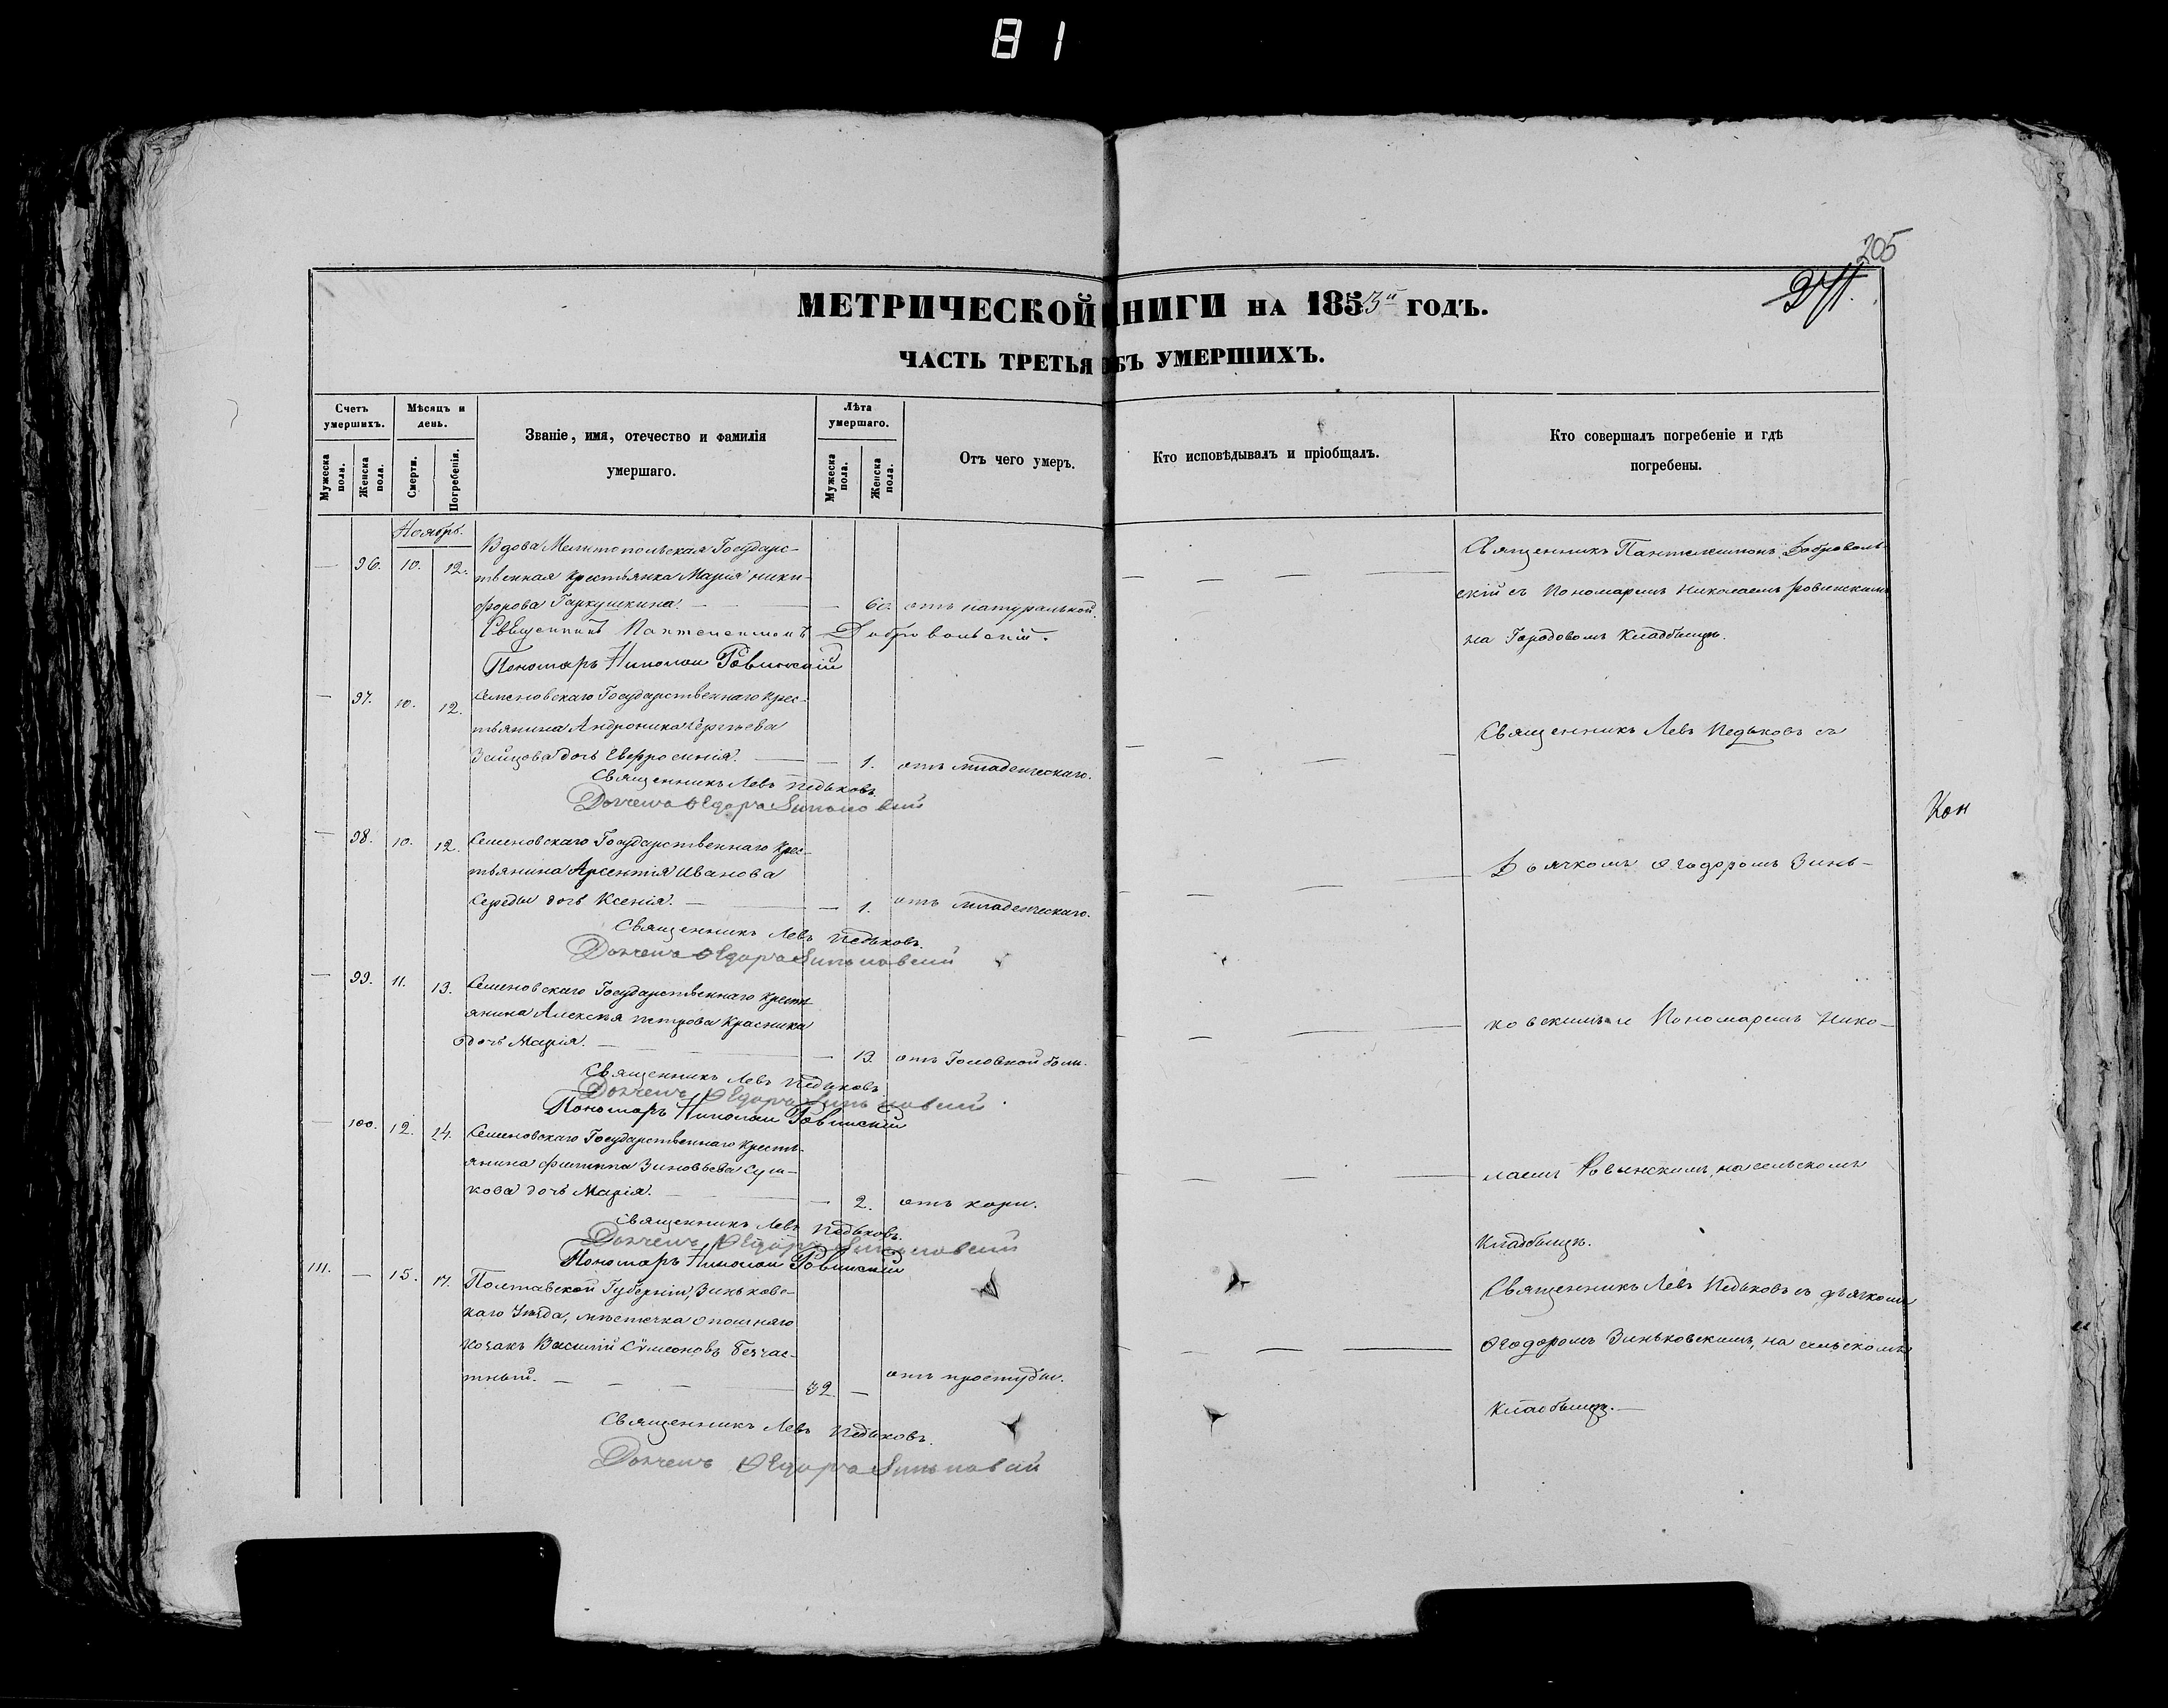 81
205
271.
МЕТРИЧЕСКОЙ КНИГИ НА 1853й ГОДЪ.
ЧАСТЬ ТРЕТЬЯ ОБЪ УМЕРШИХЪ.
Счетъ умершихъ.
Мужеска пола.
Женска пола.
Мѣсяцъ и день.
Смерти.
Погребенія.
Званіе, имя, отечество и фамилія
умершаго.
Лѣта умершаго.
Мужеска пола.
Женска пола.
Отъ чего умеръ.
Кто исповѣдывалъ и пріобщалъ.
Кто совершалъ погребеніе и гдѣ
погребены.
Ноябрь.
Вдова Мелитопольская Государс-
— 96. 10. 12. твенная крестьянка Марія Ники-
форова Гаркушкина. — — 60. отъ натуральной.
Священникъ Пантелеимонъ Добровольскій.
Пономарь Николай Ровинскій
Священникъ Пантелеимонъ Доброволь-
скій съ Пономаремъ Николаемъ Ровинскимъ
на Городовомъ Кладбищѣ.
— 97. 10. 12. Семеновскаго Государственнаго крес-
тьянина Андроника Сергѣева
Зайцева дочь Евфросинія. — — 1. отъ младенческаго.
Священникъ Левъ Педьковъ.
Дьячекъ Ѳедоръ Зиньковскій
Священникъ Левъ Педьковъ съ
Кон
— 98. 10. 12. Семеновскаго Государственнаго крес-
тьянина Арсентія Иванова
Середы дочь Ксенія. — — 1. отъ младенческаго.
Священникъ Левъ Педьковъ.
Дьячекъ Ѳедоръ Зиньковскій
Дьячкомъ Ѳеодоромъ Зинь-
— 99. 11. 13. Семеновскаго Государственнаго крестья-
янина Алексѣя Петрова Красника
дочь Марія. — — 13. отъ Головной боли.
Священникъ Левъ Педьковъ
Дьячекъ Ѳедоръ Зиньковскій
Пономарь Николай Ровинскій
ковскимъ и Пономаремъ Нико-
— 100. 12. 14. Семеновскаго Государственнаго кресть-
янина Филиппа Зиновьева Суш-
кова дочь Марія. — — 2. отъ кори.
Священникъ Левъ Педьковъ.
Дьячекъ Ѳедоръ Зиньковскій
Пономарь Николай Ровинскій
лаемъ Ровинскимъ, на сельскомъ
Кладбищѣ.
111. — 15. 17. Полтавской Губерніи, Зиньковс-
каго Уѣзда, мѣстечка Опошняго
козакъ Василій Сѵмеоновъ Безчас-
тный. — — — 32. — отъ простуды.
Священникъ Левъ Педьковъ.
Дьячекъ Ѳедоръ Зиньковскій
Священникъ Левъ Педьковъ съ дьячкомъ
Ѳеодоромъ Зиньковскимъ, на сельскомъ
Кладбищѣ. —